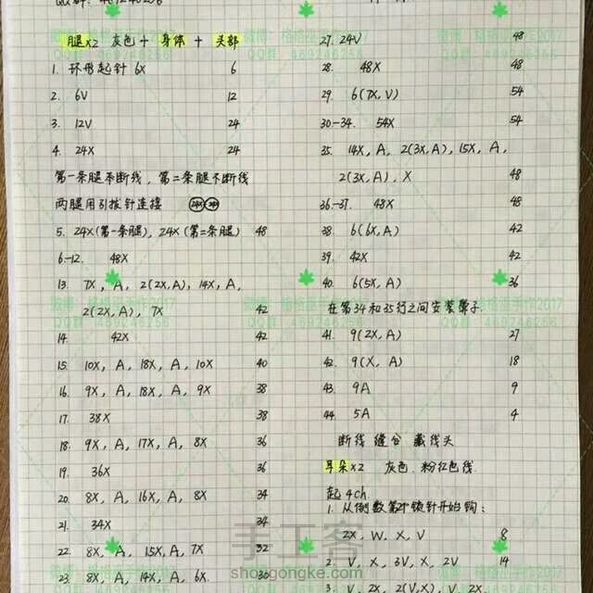 腿x2 灰色 + 身体 + 头部
1. 环形起针 6X 6
2. 6V 12
3. 12V 24
4. 24X 24
第一条腿不断线，第二条腿不断线
两腿用引拔针连接
5. 24X(第一条腿), 24X(第二条腿) 48
6-12. 48X
13. 7X, A, 2(2X,A), 14X, A,
2(2X,A), 7X 42
14. 42X 42
15. 10X, A, 18X, A, 10X 40
16. 9X, A, 18X, A, 9X 38
17. 38X 38
18. 9X, A, 17X, A, 8X 36
19. 36X 36
20. 8X, A, 16X, A, 8X 34
21. 34X 34
22. 8X, A, 15X, A, 7X 32
23. 8X, A, 14X, A, 6X. 30
27. 24V 48
28. 48X 48
29. 6(7X,V) 54
30-34. 54X 54
35. 14X, A, 2(3X,A), 15X, A,
2(3X,A), X 48
36-37. 48X 48
38. 6(6X,A) 42
39. 42X 42
40. 6(5X,A) 36
在第34和35行之间安装鼻子.
41. 9(2X,A) 27
42. 9(X,A) 18
43. 9A 9
44. 5A 4
断线 缝合 藏线头
耳朵x2 灰色、粉红色线.
起4ch
1. 从倒数第2个锁针开始钩:
2X, W, X, V 8
2. V, X, 3V, X, 2V 14
3. V, 2X, 2(V,X), V, 2X,
手工客
shougongke.com